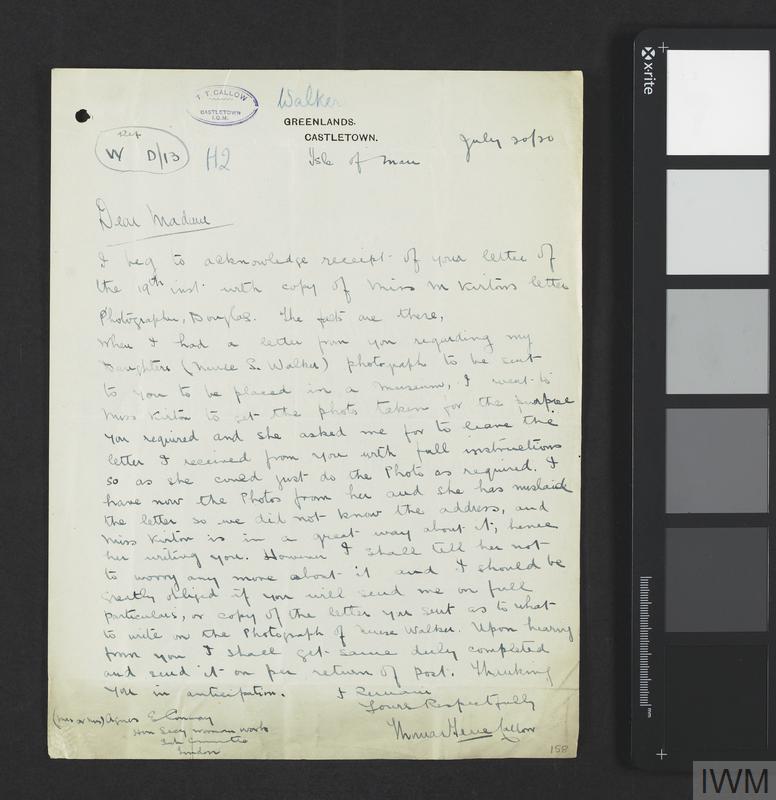 T. T. CALLOW
CASTLETOWN
I.O.M.
Walker
GREENLANDS.
CASTLETOWN.
Isle of Man
July 20/20
Ref
W D/13
H2
Dear Madam
I beg to acknowledge receipt of your letter of
the 19th inst. with copy of Miss M Kirtons letter
Photographer, Douglas. The facts are these,
When I had a letter from you regarding my
Daughters (Nurse S. Walker) photograph to be sent
to you to be placed in a museum, I went to
Miss Kirton to get the photo taken for the purpose
you required and she asked me for to leave the
letter I received from you with full instructions
so as she could just do the Photo as required. I
have now the Photos from her and she has mislaid
the letter so we did not know the address, and
Miss Kirton is in a great way about it, hence
her writing you. However I shall tell her not
to worry any more about it and I should be
greatly obliged if you will send me on full
particulars, or copy of the letter you sent as to what
to write on the Photograph of Nurse Walker. Upon hearing
from you I shall get same duly completed
and send it on per return of post. Thanking
you in anticipation. I Remain
Yours Respectfully
Thomas Callow
(Mrs or Miss) Agnes E Conway
Hon Secy Woman Work
Sub Committee
London
158
x-rite
mm
IWM